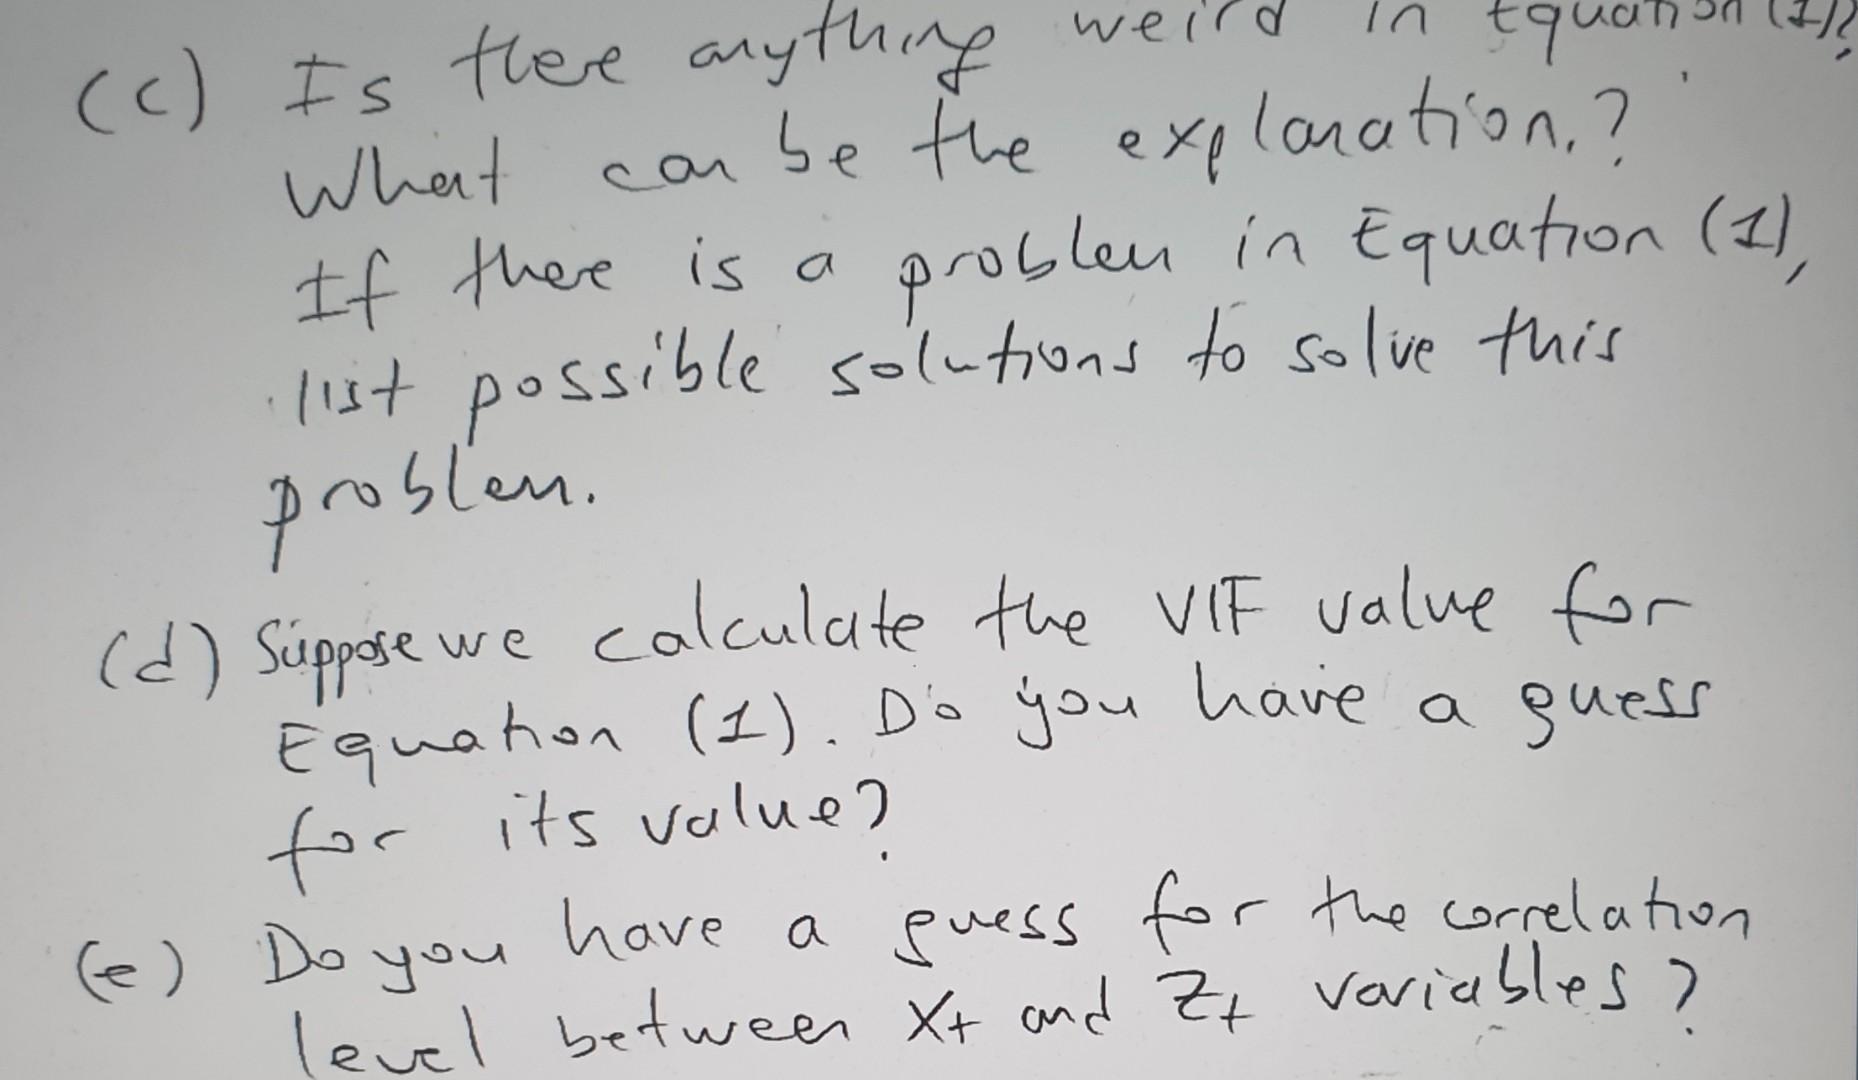 (c) Is there anything weird in Equation (1)?
What can be the explanation.?
If there is a problem in Equation (1),
list possible solutions to solve this
problem.
(d) Suppose we calculate the VIF value for
Equation (1). Do you have a guess
for its value?
(e) Do you have a guess for the correlation
level between Xt and Zt variables?